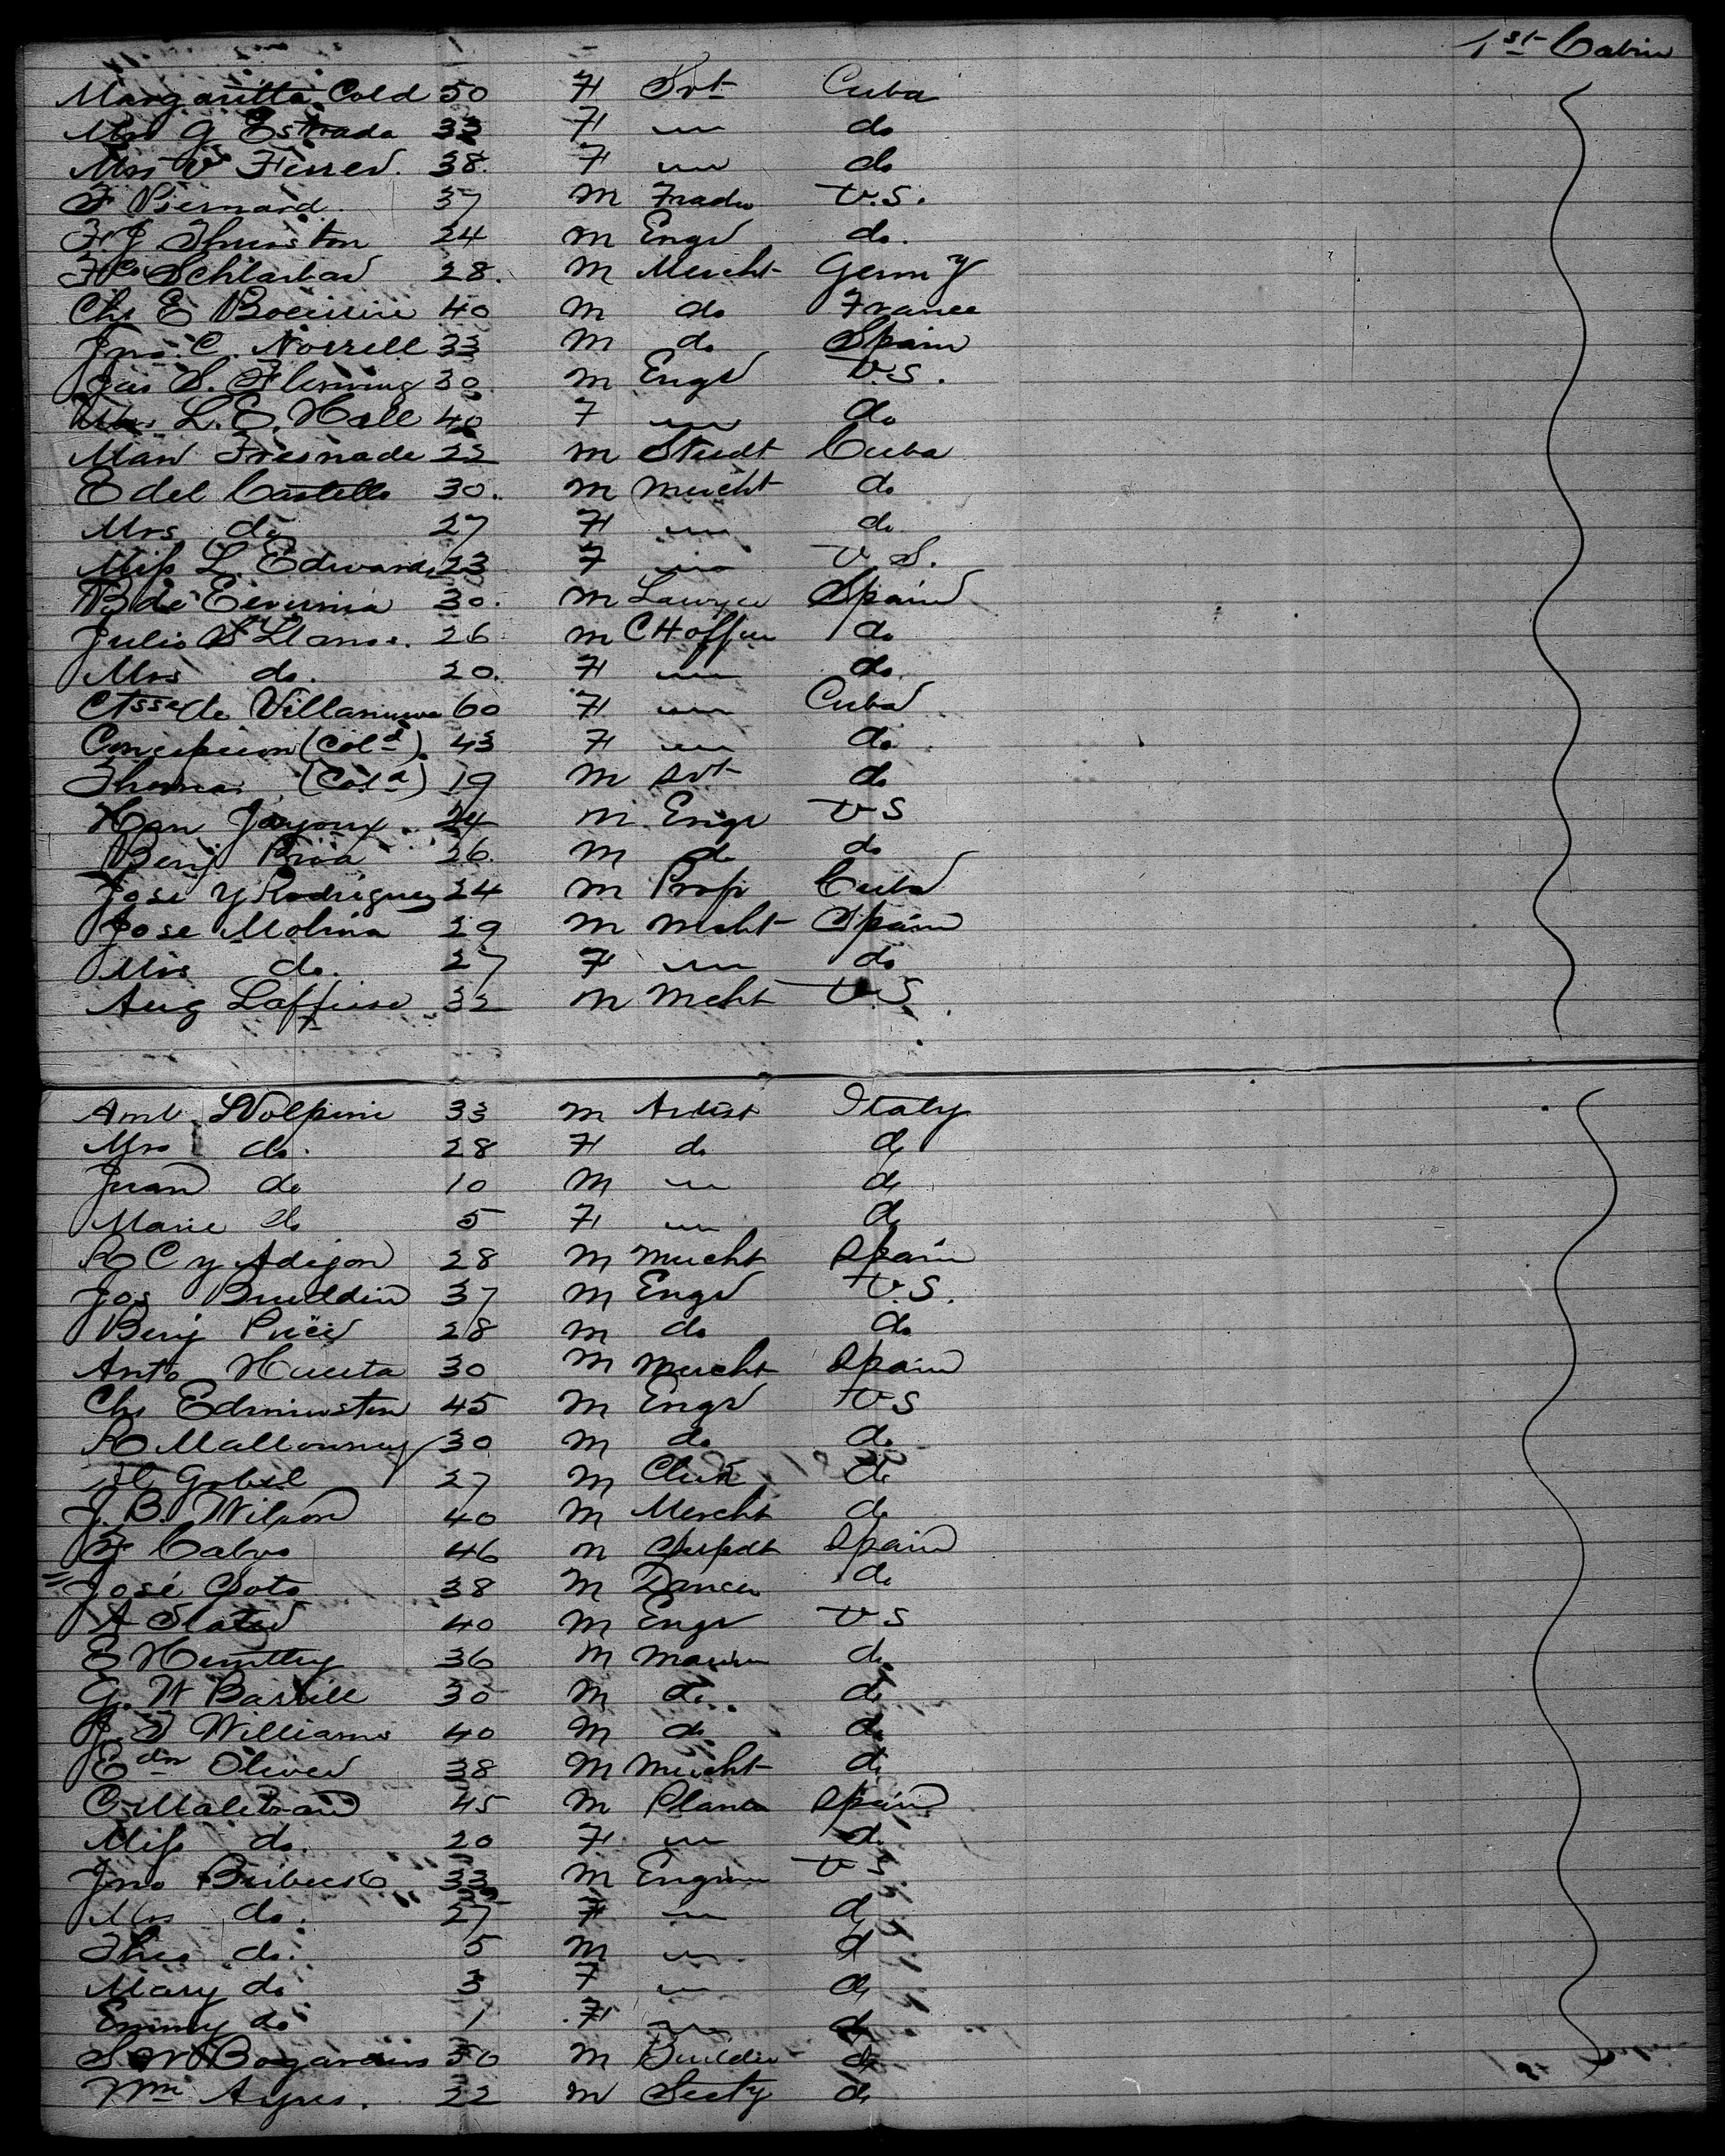 1st Cabin
Margaritta Cold 50 F Svt Cuba
Mrs G Estrada 33 F " do
Mrs V Ferrer. 38. F " do
F Piernard 37 M Trader U.S.
F. J Thurston 24 M Engr do.
Schlarbar 28. M Mercht Germy
Chs E 40 M do France
Jno. C. Norrell 33 M do Spain
Jas S. Fleming 30 M Engr U.S.
Mrs L. E. Hall 40 F " do
Man Fresnade 22 M Studt Cuba
E del Castello 30. M Mercht do
Mrs do 27 F " do
Miss L. Edwards 23 F " U S.
B de 30. M Lawyer Spain
Julio S Llanos. 26 M C H offcer do
Mrs do. 20. F " do.
Ctsse de Villanueva 60 F " Cuba
Concepcion (Cold) 43 F " do
Thomas (Cold) 19 M Svt do
24 M Engr U S
Benj 26. M do do
Jose Y Rodriguez 24 M Propr Cuba
Jose Molina 29 M Mcht Spain
Mrs do. 27 F " do
Aug 32 M Mcht U.S.
Amb Volpini 33 M Artist Italy
Mrs do. 28 F do do
Juan do 10 M " do
Marie do 5 F " do
R C y Adigon 28 M Mercht Spain
Jos 37 M Engr U.S.
Benj 28 M do do
Anto Huerta 30 M Mercht Spain
Chs Edminston 45 M Engr U S
R Mallowney 30 M do do
Gobel 27 M Clerk do
J. B. Wilson 40 M Mercht do
F Calvo 46 M Spain
José Soto 38 M Dancer do
A Slater 40 M Engr U S
E 36 M Mariner do
G. W Barrill 30 M do. do
J. T Williams 40 M do do
Edm Oliver 38 M Mercht do
C Malibran 45 M Planter Spain
Miss do. 20 F " do
Jno 33 M Engineer U S
Mrs do. 27 F " do
Theo do. 5 M " do
Mary do 3 F " do
Emmy do 1 F " do
S W Bogardus 50 M Builder do
Wm Ayres. 22 M Secty do